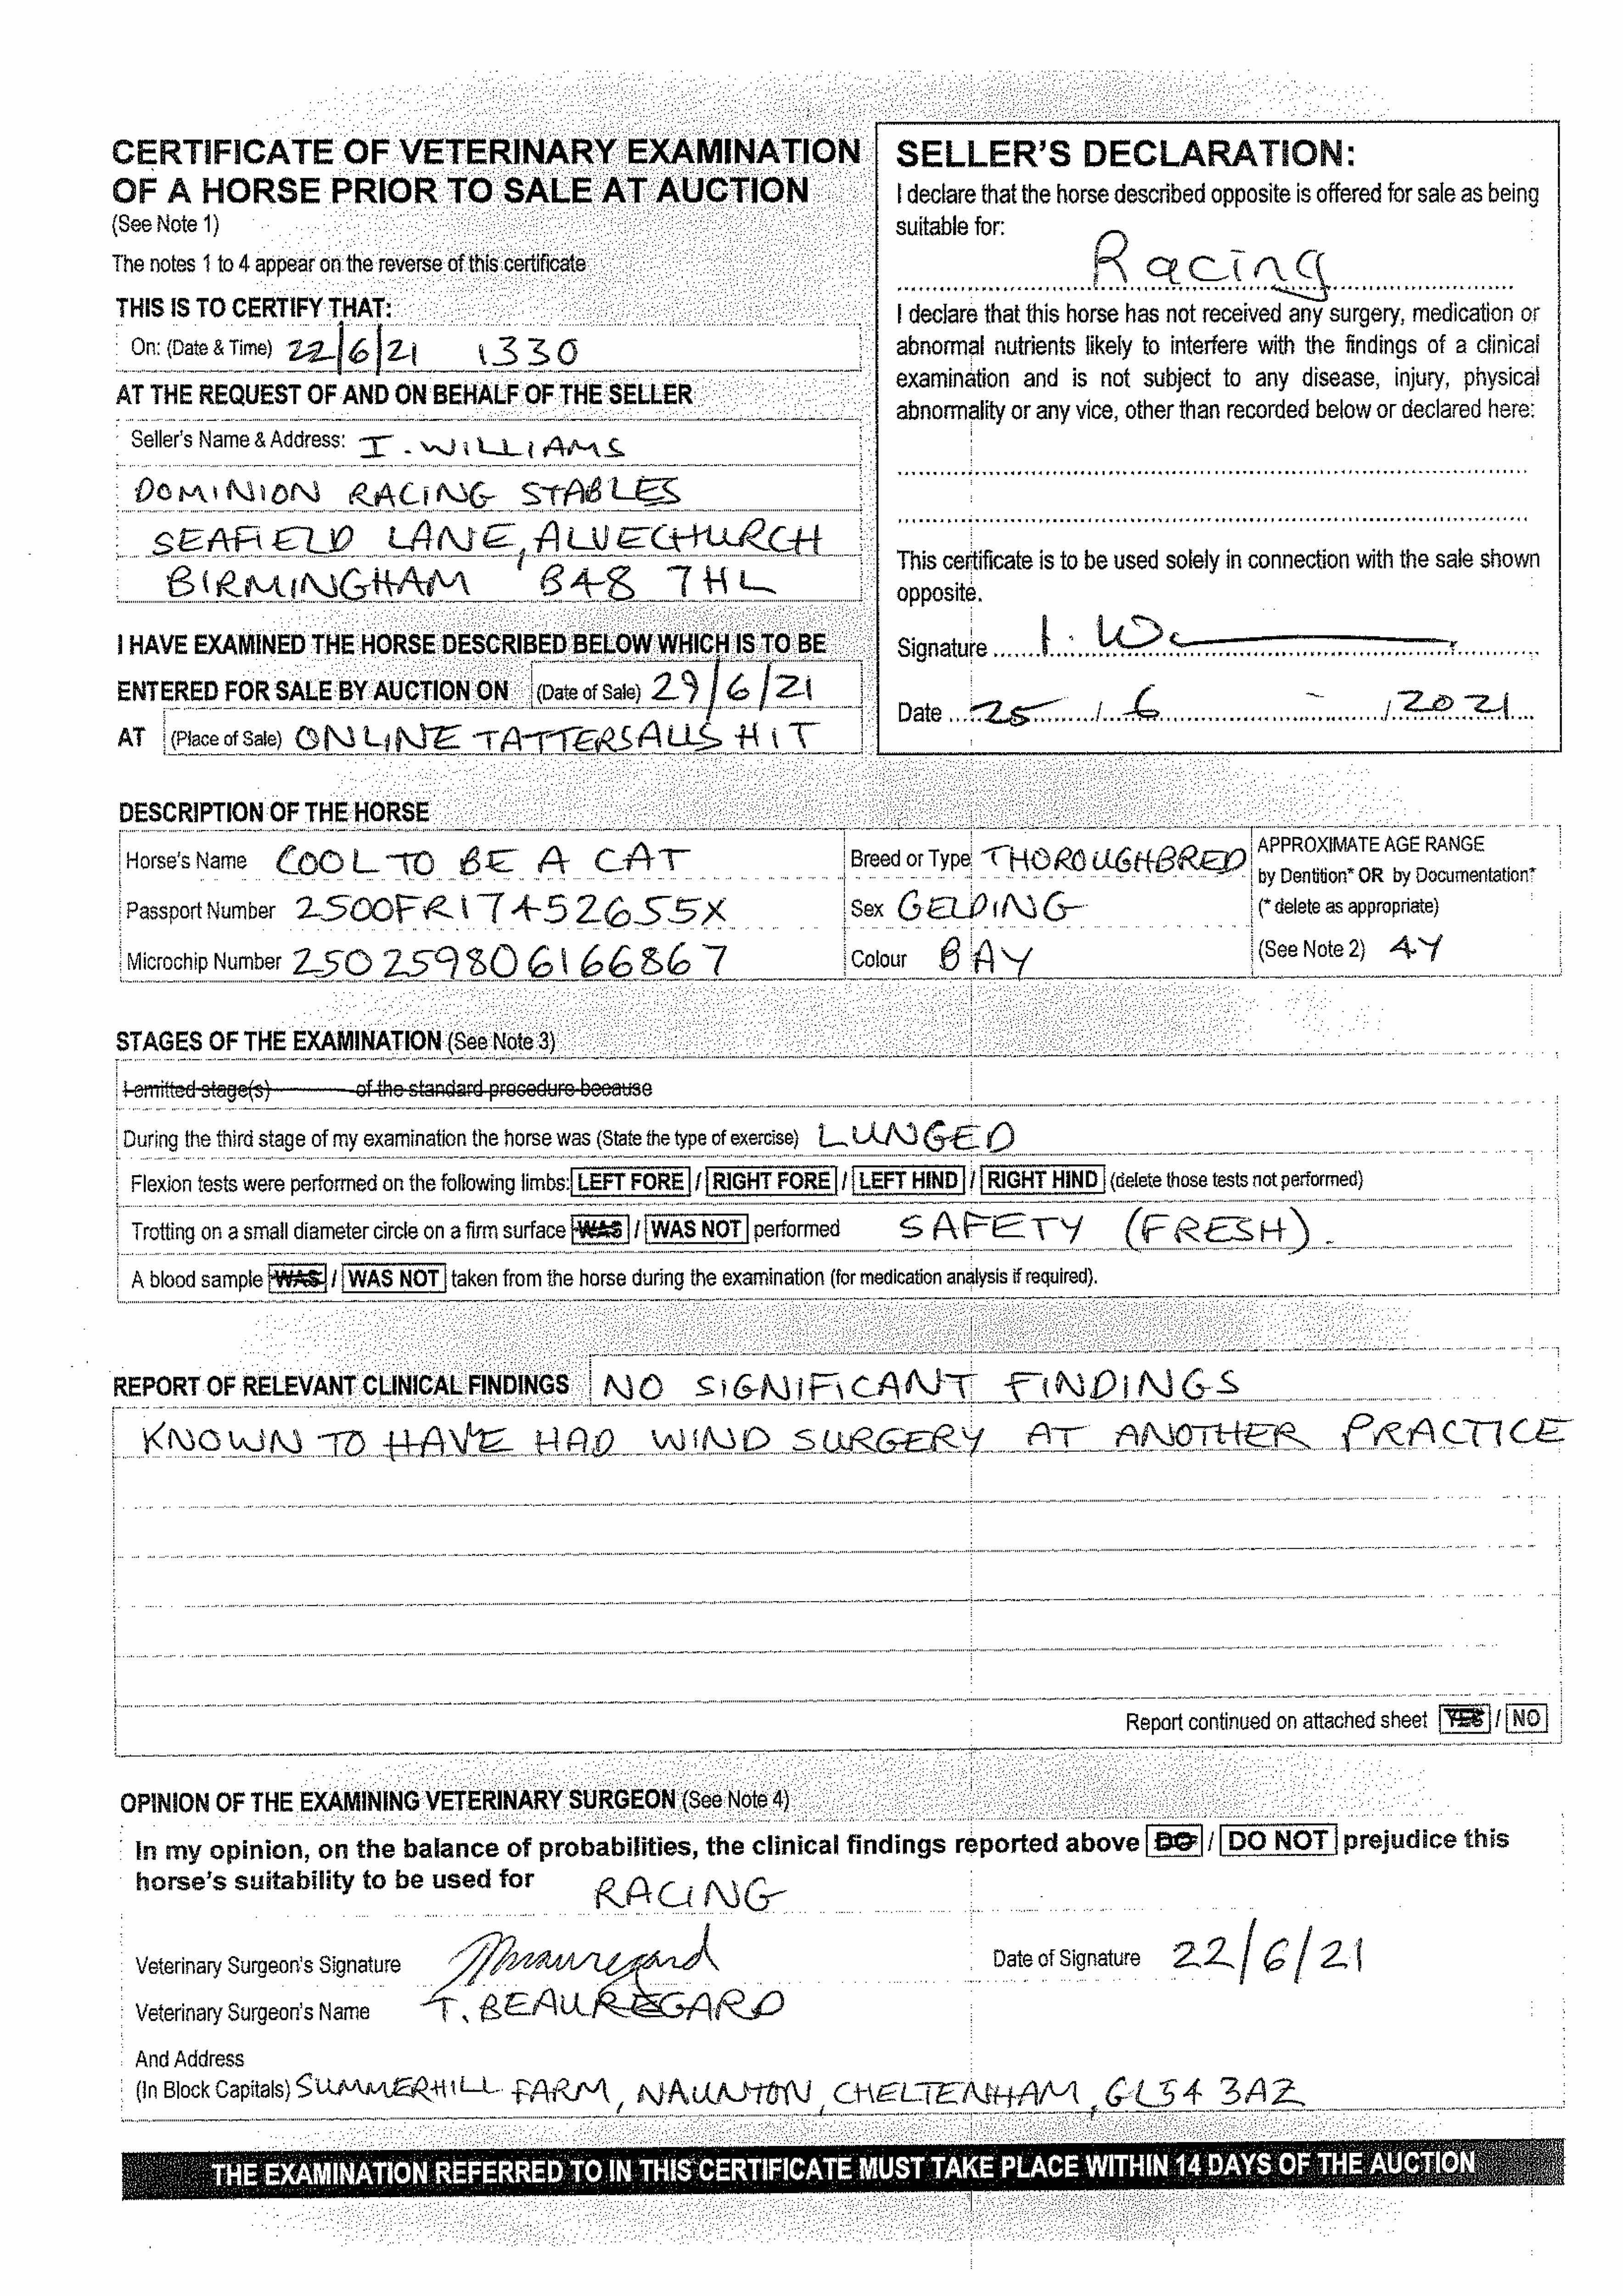 CERTIFICATE OF VETERINARY EXAMINATION
OF A HORSE PRIOR TO SALE AT AUCTION
(See Note 1)
The notes 1 to 4 appear on the reverse of this certificate
THIS IS TO CERTIFY THAT:
On: (Date & Time) 22/6/21 1330
AT THE REQUEST OF AND ON BEHALF OF THE SELLER
Seller's Name & Address: I. WILLIAMS
DOMINION RACING STABLES
SEAFIELD LANE, ALVECHURCH
BIRMINGHAM B48 7HL
I HAVE EXAMINED THE HORSE DESCRIBED BELOW WHICH IS TO BE
ENTERED FOR SALE BY AUCTION ON (Date of Sale) 29/6/21
AT (Place of Sale) ONLINE TATTERSALLS HIT
SELLER'S DECLARATION:
I declare that the horse described opposite is offered for sale as being
suitable for:
Racing
I declare that this horse has not received any surgery, medication or
abnormal nutrients likely to interfere with the findings of a clinical
examination and is not subject to any disease, injury, physical
abnormality or any vice, other than recorded below or declared here:
This certificate is to be used solely in connection with the sale shown
opposite.
Signature I. W
Date 25 / 6 / 2021
DESCRIPTION OF THE HORSE
Horse's Name COOL TO BE A CAT
Passport Number 2500FR17452655X
Microchip Number 250259806166867
Breed or Type THOROUGHBRED
Sex GELDING
Colour BAY
APPROXIMATE AGE RANGE
by Dentition* OR by Documentation*
(* delete as appropriate)
(See Note 2) 4Y
STAGES OF THE EXAMINATION (See Note 3)
I omitted stage(s) of the standard procedure because
During the third stage of my examination the horse was (State the type of exercise) LUNGED
Flexion tests were performed on the following limbs: LEFT FORE / RIGHT FORE / LEFT HIND / RIGHT HIND (delete those tests not performed)
Trotting on a small diameter circle on a firm surface WAS / WAS NOT performed SAFETY (FRESH).
A blood sample WAS / WAS NOT taken from the horse during the examination (for medication analysis if required).
REPORT OF RELEVANT CLINICAL FINDINGS NO SIGNIFICANT FINDINGS
KNOWN TO HAVE HAD WIND SURGERY AT ANOTHER PRACTICE
Report continued on attached sheet YES / NO
OPINION OF THE EXAMINING VETERINARY SURGEON (See Note 4)
In my opinion, on the balance of probabilities, the clinical findings reported above DO / DO NOT prejudice this
horse's suitability to be used for RACING
Veterinary Surgeon's Signature
Date of Signature 22/6/21
Veterinary Surgeon's Name T. BEAUREGARD
And Address
(In Block Capitals) SUMMERHILL FARM, NAUNTON, CHELTENHAM, GL54 3AZ
THE EXAMINATION REFERRED TO IN THIS CERTIFICATE MUST TAKE PLACE WITHIN 14 DAYS OF THE AUCTION